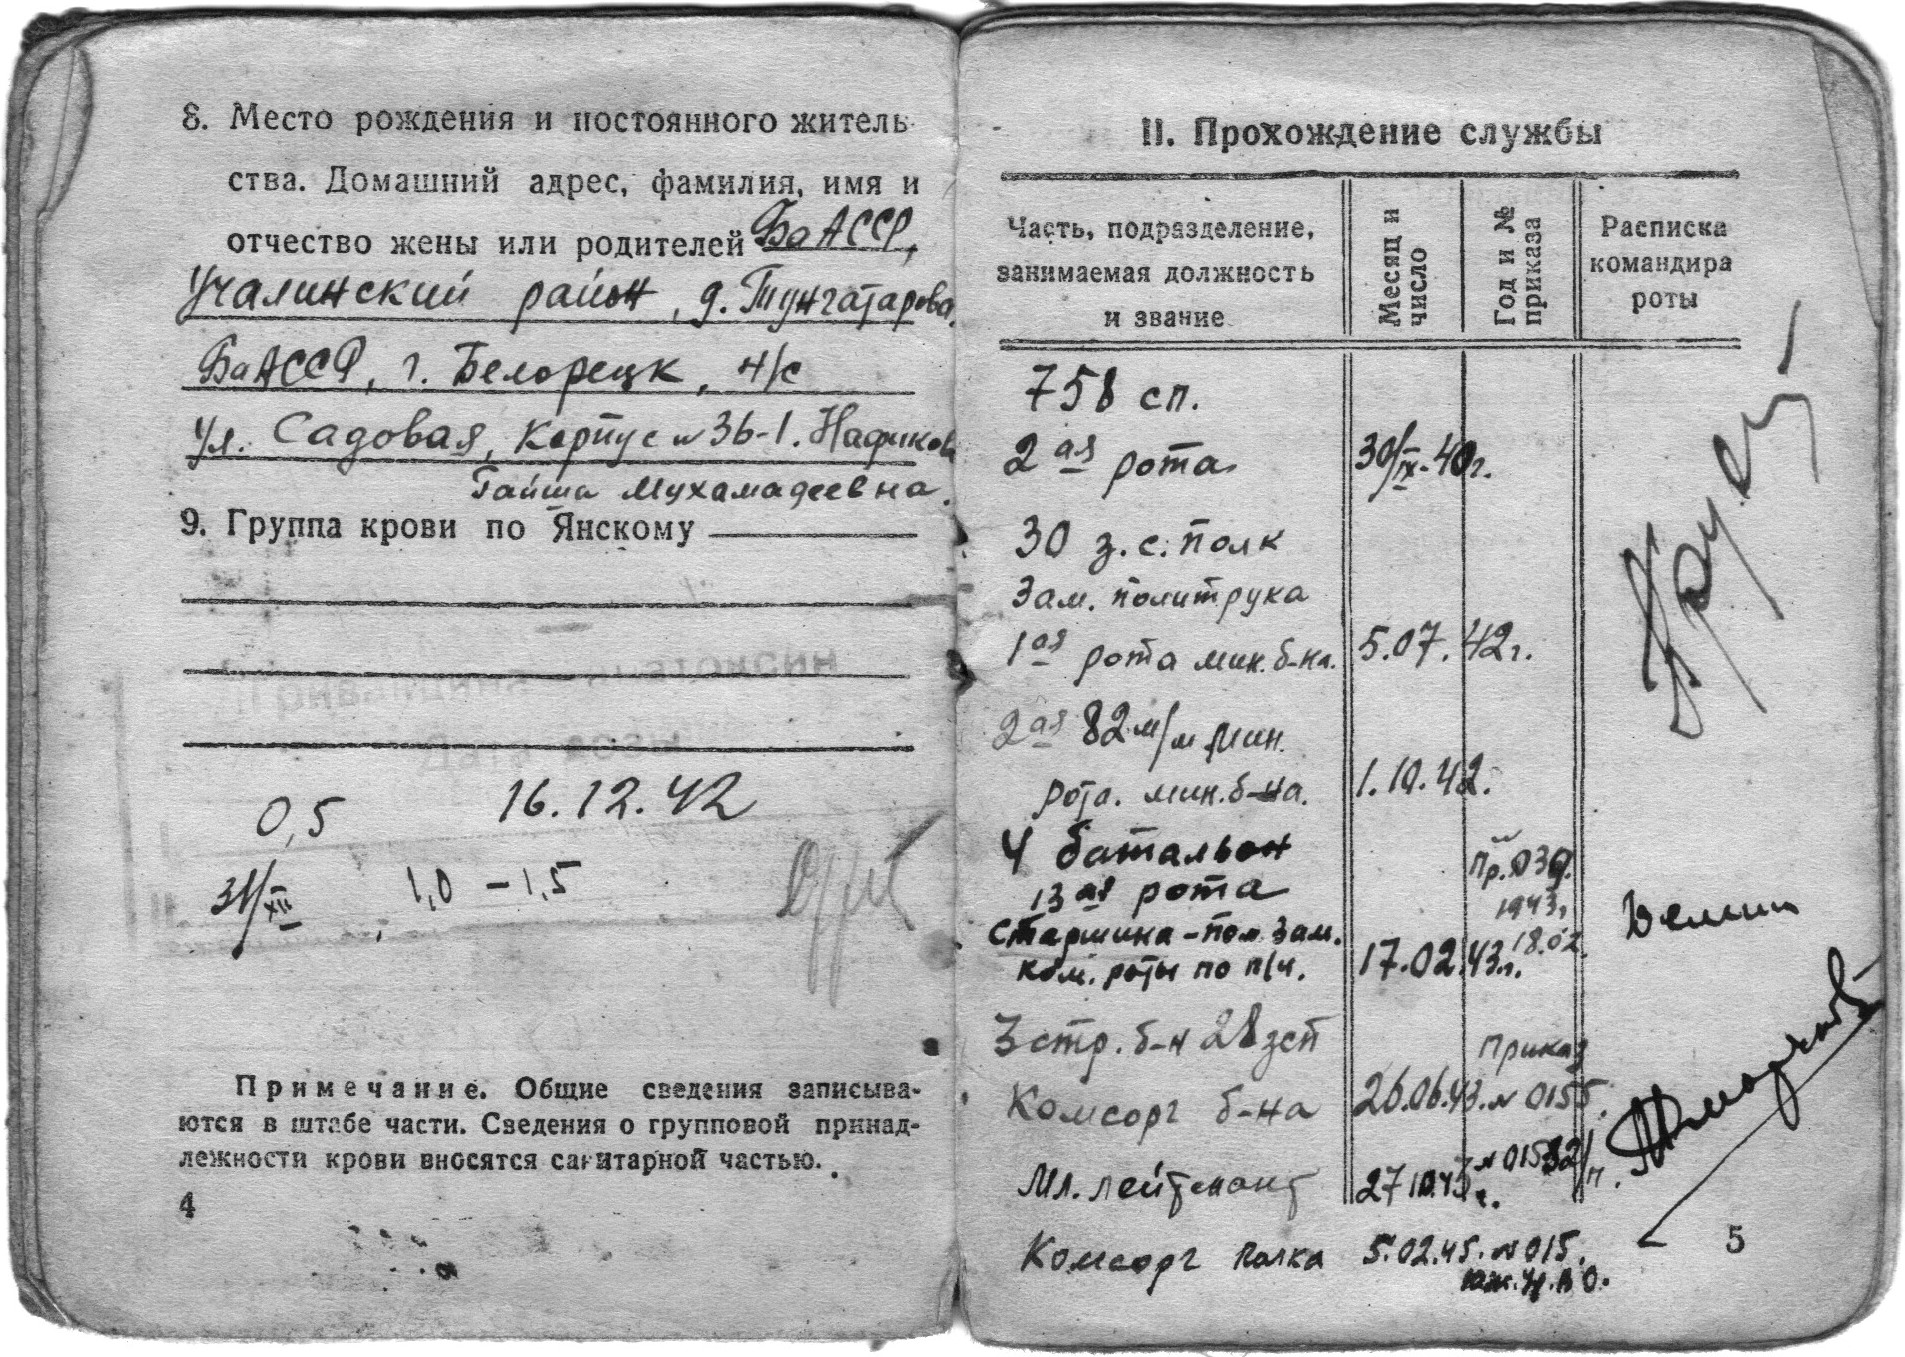 8. Место рождения и постоянного житель-
ства. Домашний адрес, фамилия, имя и
отчество жены или родителей БаАССР,
Учалинский район, д. Тунгатарова.
БаАССР, г. Белорецк, н/с
Ул. Садовая, Корпус № 36-1. Нафикова
Гайша Мухамадеевна.
9. Группа крови по Янскому
0,5 16.12.42
31/XII 1,0 - 1,5
Примечание. Общие сведения записыва-
ются в штабе части. Сведения о групповой принад-
лежности крови вносятся санитарной частью.
4
II. Прохождение службы
Часть, подразделение,
занимаемая должность
и звание
Месяц и
число
Год и №
приказа
Расписка
командира
роты
758 сп.
2ая рота 30/IX-40г.
30 з.с. полк
Зам. политрука
1ая рота мин. б-на. 5.07.42г.
2ая 82 м/м мин.
рота. мин. б-на. 1.10.42.
4 батальон
Пр. 039.
13ая рота
1943г
Старшина - пол. Зам.
18.02.
ком. роты по п/ч. 17.02.43г.
3 стр. б-н 28 зсп
Приказ
Комсорг б-на 26.06.43. № 0155.
Мл. лейтенант 27.10.43г.
Комсорг полка 5.02.45. № 015.
Юж.У.В.О.
5